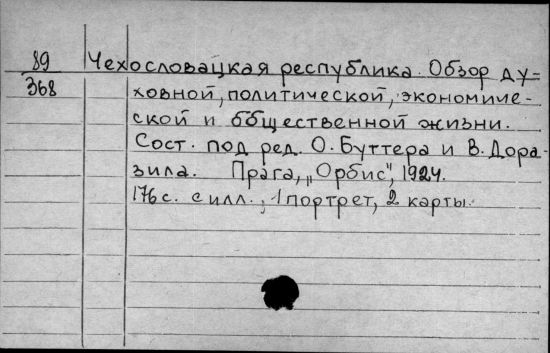 89 Чехословацкая республика. Обзор ду=
368 ховной, политической, экономиче-
ской и общественной жизни.
Сост. под ред. О. Буттера и В. Дора-
зила. Прага, „Орбис", 1924.
176 с. с илл., 1 портрет, 2 карты.